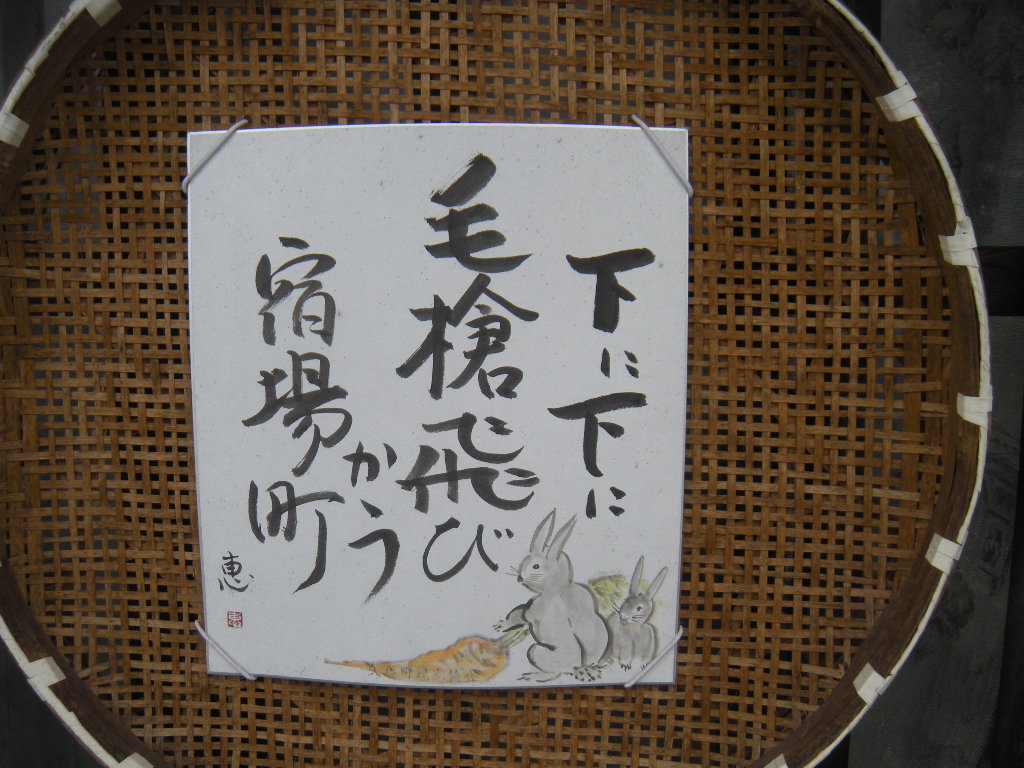 下に下に
毛槍飛び
かう
宿場町
恵